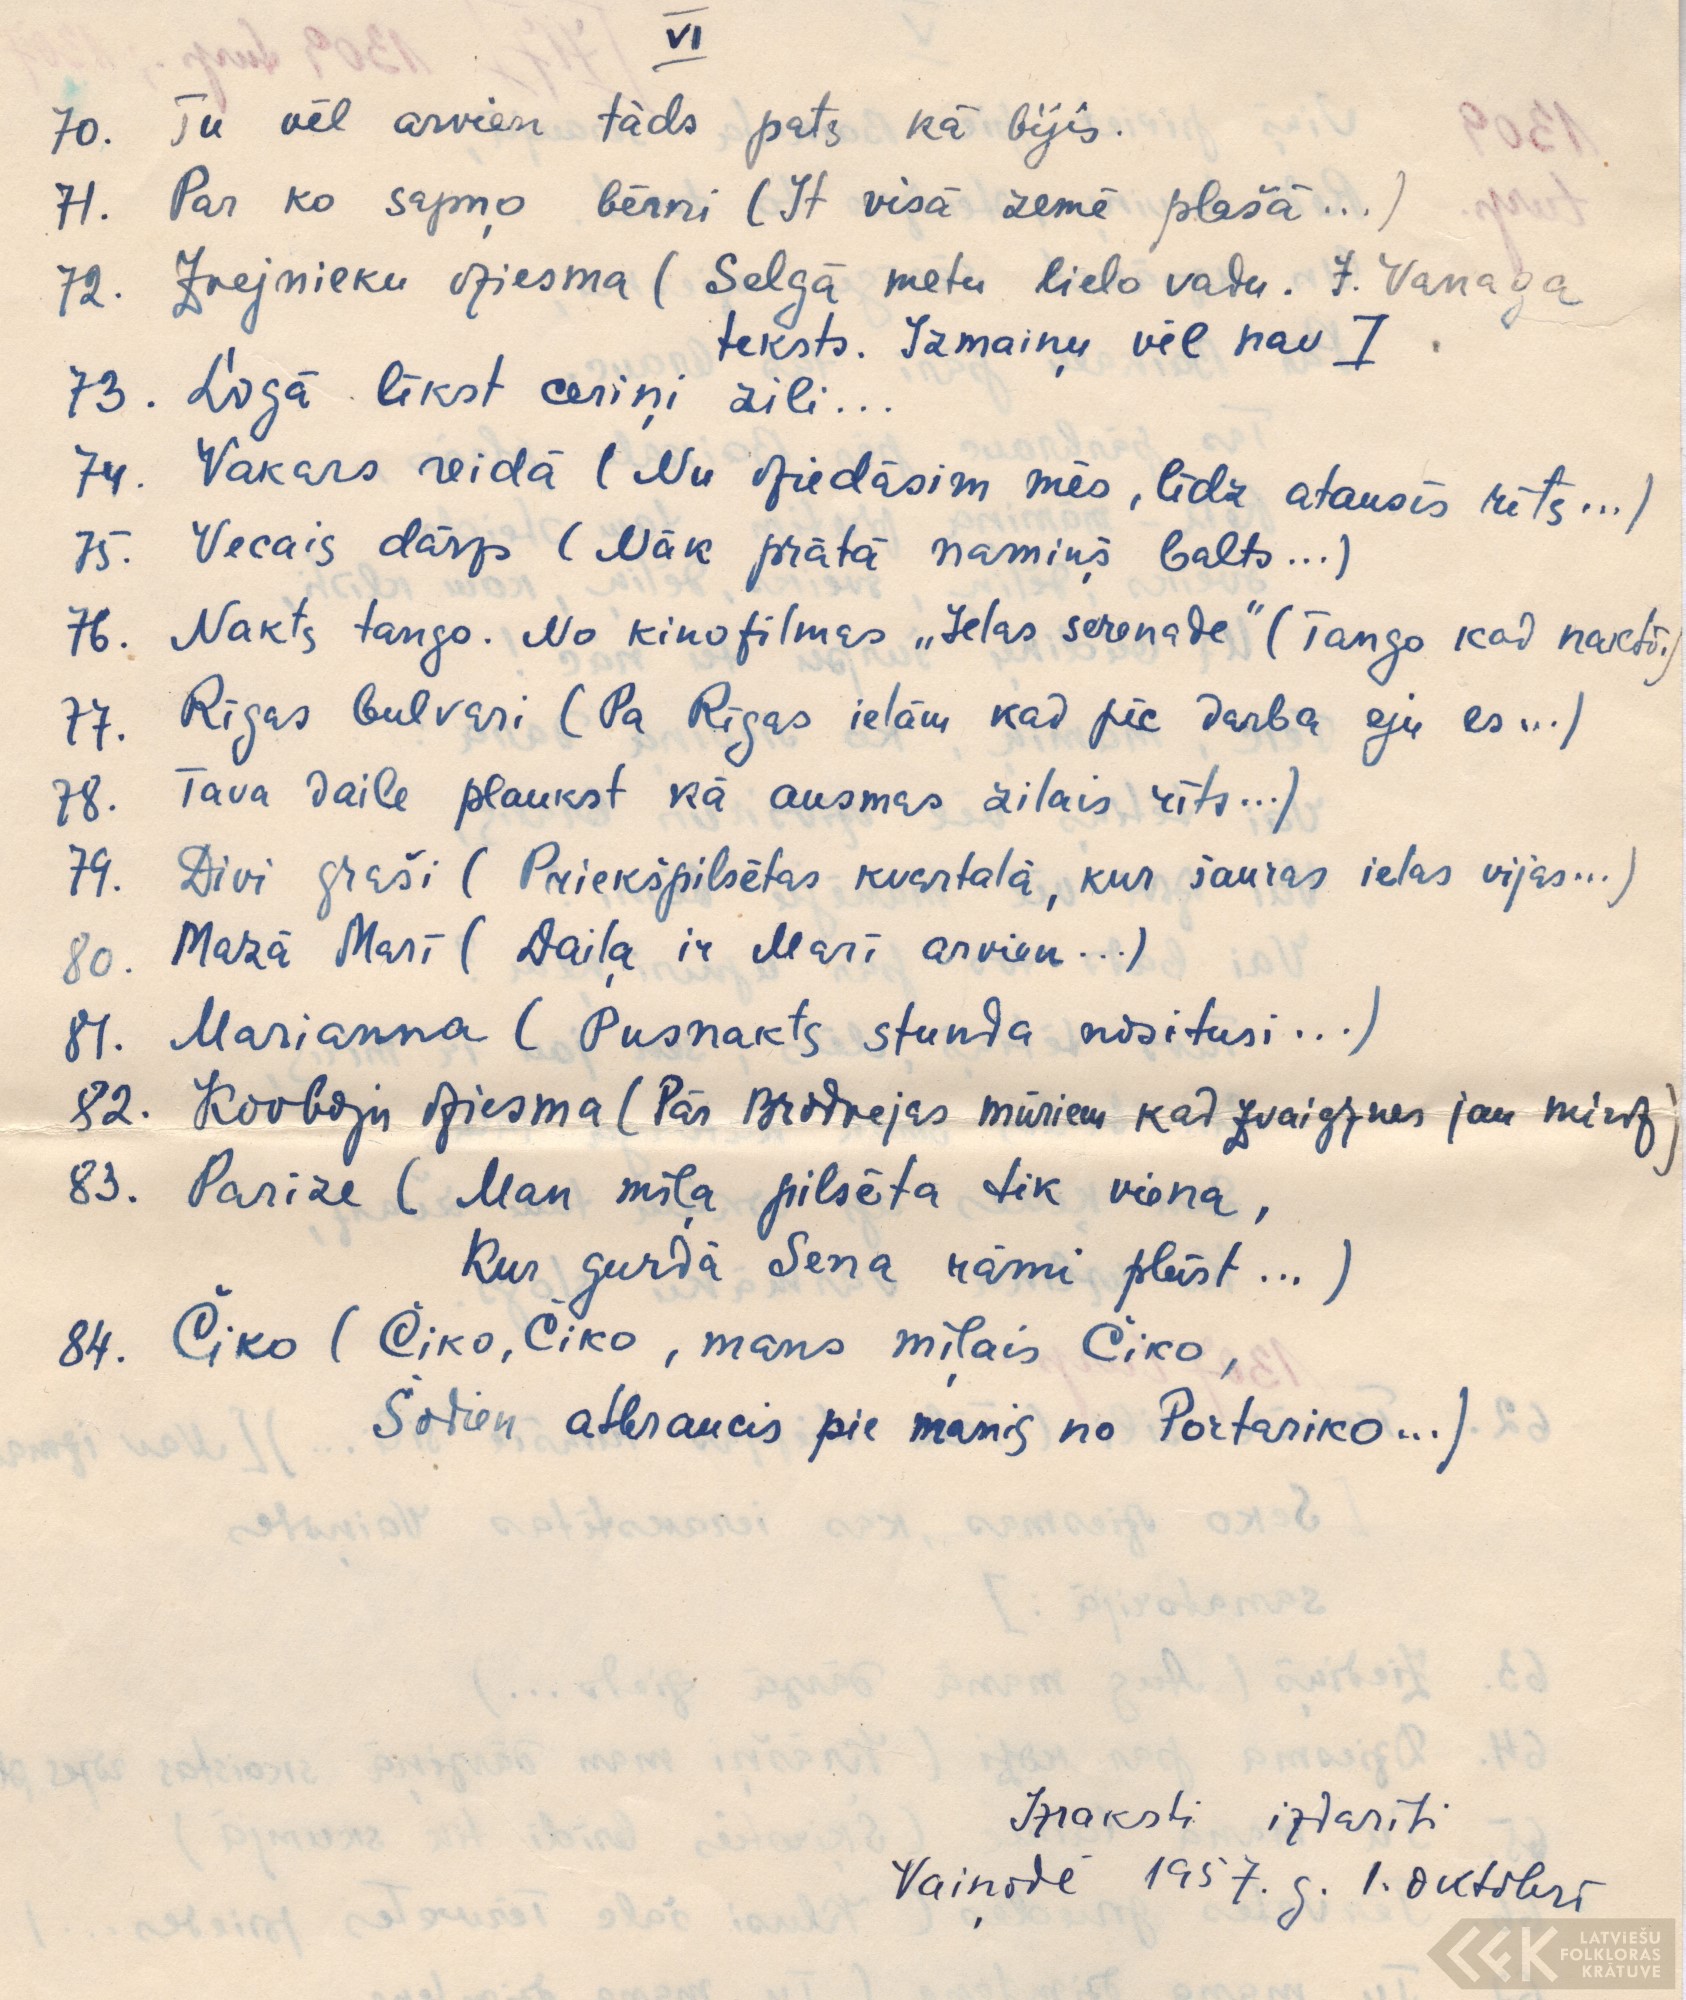 VI
70. Tu vēl arvien tāds pats kā bijis.
71. Par ko sapņo bērni (It visā zemē plašā...)
72. Zvejnieku dziesma (Selgā metu lielo vadu. J. Vanaga
teksts. Izmaiņu vēl nav]
73. Logā līkst ceriņi zili...
74. Vakars reidā (Nu dziedāsim mēs, līdz atausīs rīts...)
75. Vecais dārzs (Nāk prātā namiņš balts...)
76. Nakts tango. No kinofilmas „Ielas serenade" (Tango kad naktī..)
77. Rīgas bulvari (Pa Rīgas ielām kad pēc darba eju es...)
78. Tava daile plaukst kā ausmas zilais rīts...)
79. Divi graši (Priekšpilsētas kvartalā, kur šauras ielas vijas...)
80. Mazā Marī (Daiļa ir Marī arvien...)
81. Marianna (Pusnakts stunda nositusi...)
82. Kovboju dziesma (Pār Brodvejas mūriem kad zvaigznes jau mirdz)
83. Parize (Man mīļa pilsēta tik viena,
Kur gurdā Sena rāmi plūst...)
84. Čiko (Čiko, Čiko, mans mīļais Čiko,
Šodien atbraucis pie manis no Portariko...)
Izraksti izdarīti
Vaiņodē 1957. g. 1. oktobrī
LATVIEŠU
FOLKLORAS
KRĀTUVE